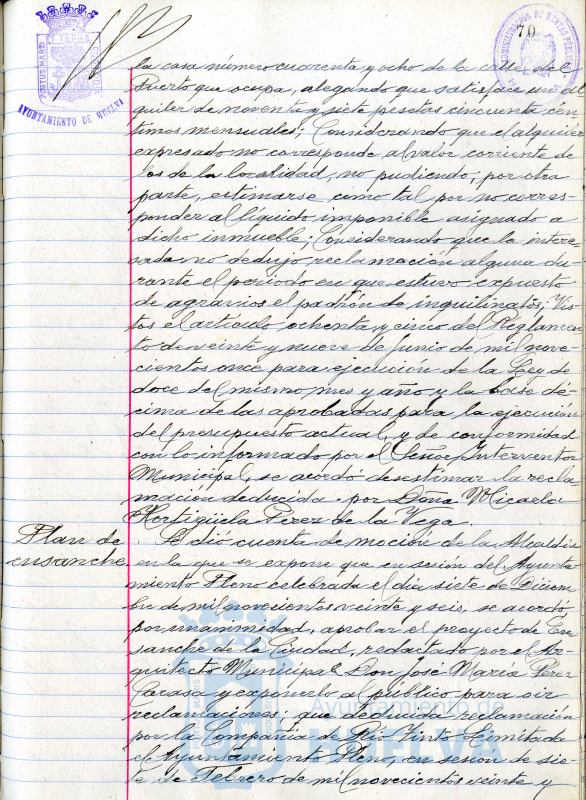 70
AYUNTAMIENTO DE HUELVA
la casa número cuarenta y ocho de la calle del
Puerto que ocupa, alegando que satisface un al-
quiler de noventa y siete pesetas cincuenta cén-
timos mensuales; Considerando que el alquiler
expresado no corresponde al valor corriente de
los de la localidad, no pudiendo, por otra
parte, estimarse como tal por no corres-
ponder al líquido imponible asignado a
dicho inmueble; Considerando que la intere-
sada no dedujo reclamación alguna du-
rante el período en que estuvo expuesto
de agravios el padrón de inquilinatos; Vis-
tos el artículo ochenta y cinco del Reglamen-
to de veinte y nueve de Junio de mil nove-
cientos once para ejecución de la Ley de
doce del mismo mes y año y la base dé-
cima de las aprobadas para la ejecución
del presupuesto actual, y de conformidad
con lo informado por el Señor Interventor
Municipal, se acordó desestimar la recla-
mación deducida por Doña Micaela
Hortigüela Perez de la Vega.
Plan de
ensanche
Se dió cuenta de moción de la Alcaldía
en la que se expone que en sesión del Ayunta-
miento Pleno celebrada el día siete de Diciem-
bre de mil novecientos veinte y seis, se acordó,
por unanimidad, aprobar el proyecto de En-
sanche de la Ciudad, redactado por el Ar-
quitecto Municipal Don José María Perez
Carasa y exponerlo al público para oir
reclamaciones; que deducida reclamación
por la Compañía de Rio Tinto Limitada
el Ayuntamiento Pleno, en sesión de sie-
te de Febrero de mil novecientos veinte y
Ayuntamiento de
HUELVA